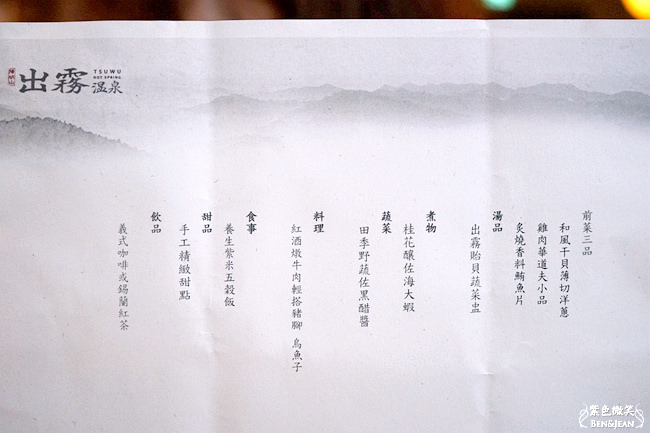 出霧
TSUWU
HOT SPRING
溫泉
前菜三品
和風干貝薄切洋蔥
雞肉華道夫小品
炙燒香料鮪魚片
湯品
出霧貽貝蔬菜盅
煮物
桂花釀佐海大蝦
蔬菜
田季野蔬佐黑醋醬
料理
紅酒燉牛肉輕搭豬腳 烏魚子
食事
養生紫米五穀飯
甜品
手工精緻甜點
飲品
義式咖啡或錫蘭紅茶
紫色微笑
BEN&JEAN